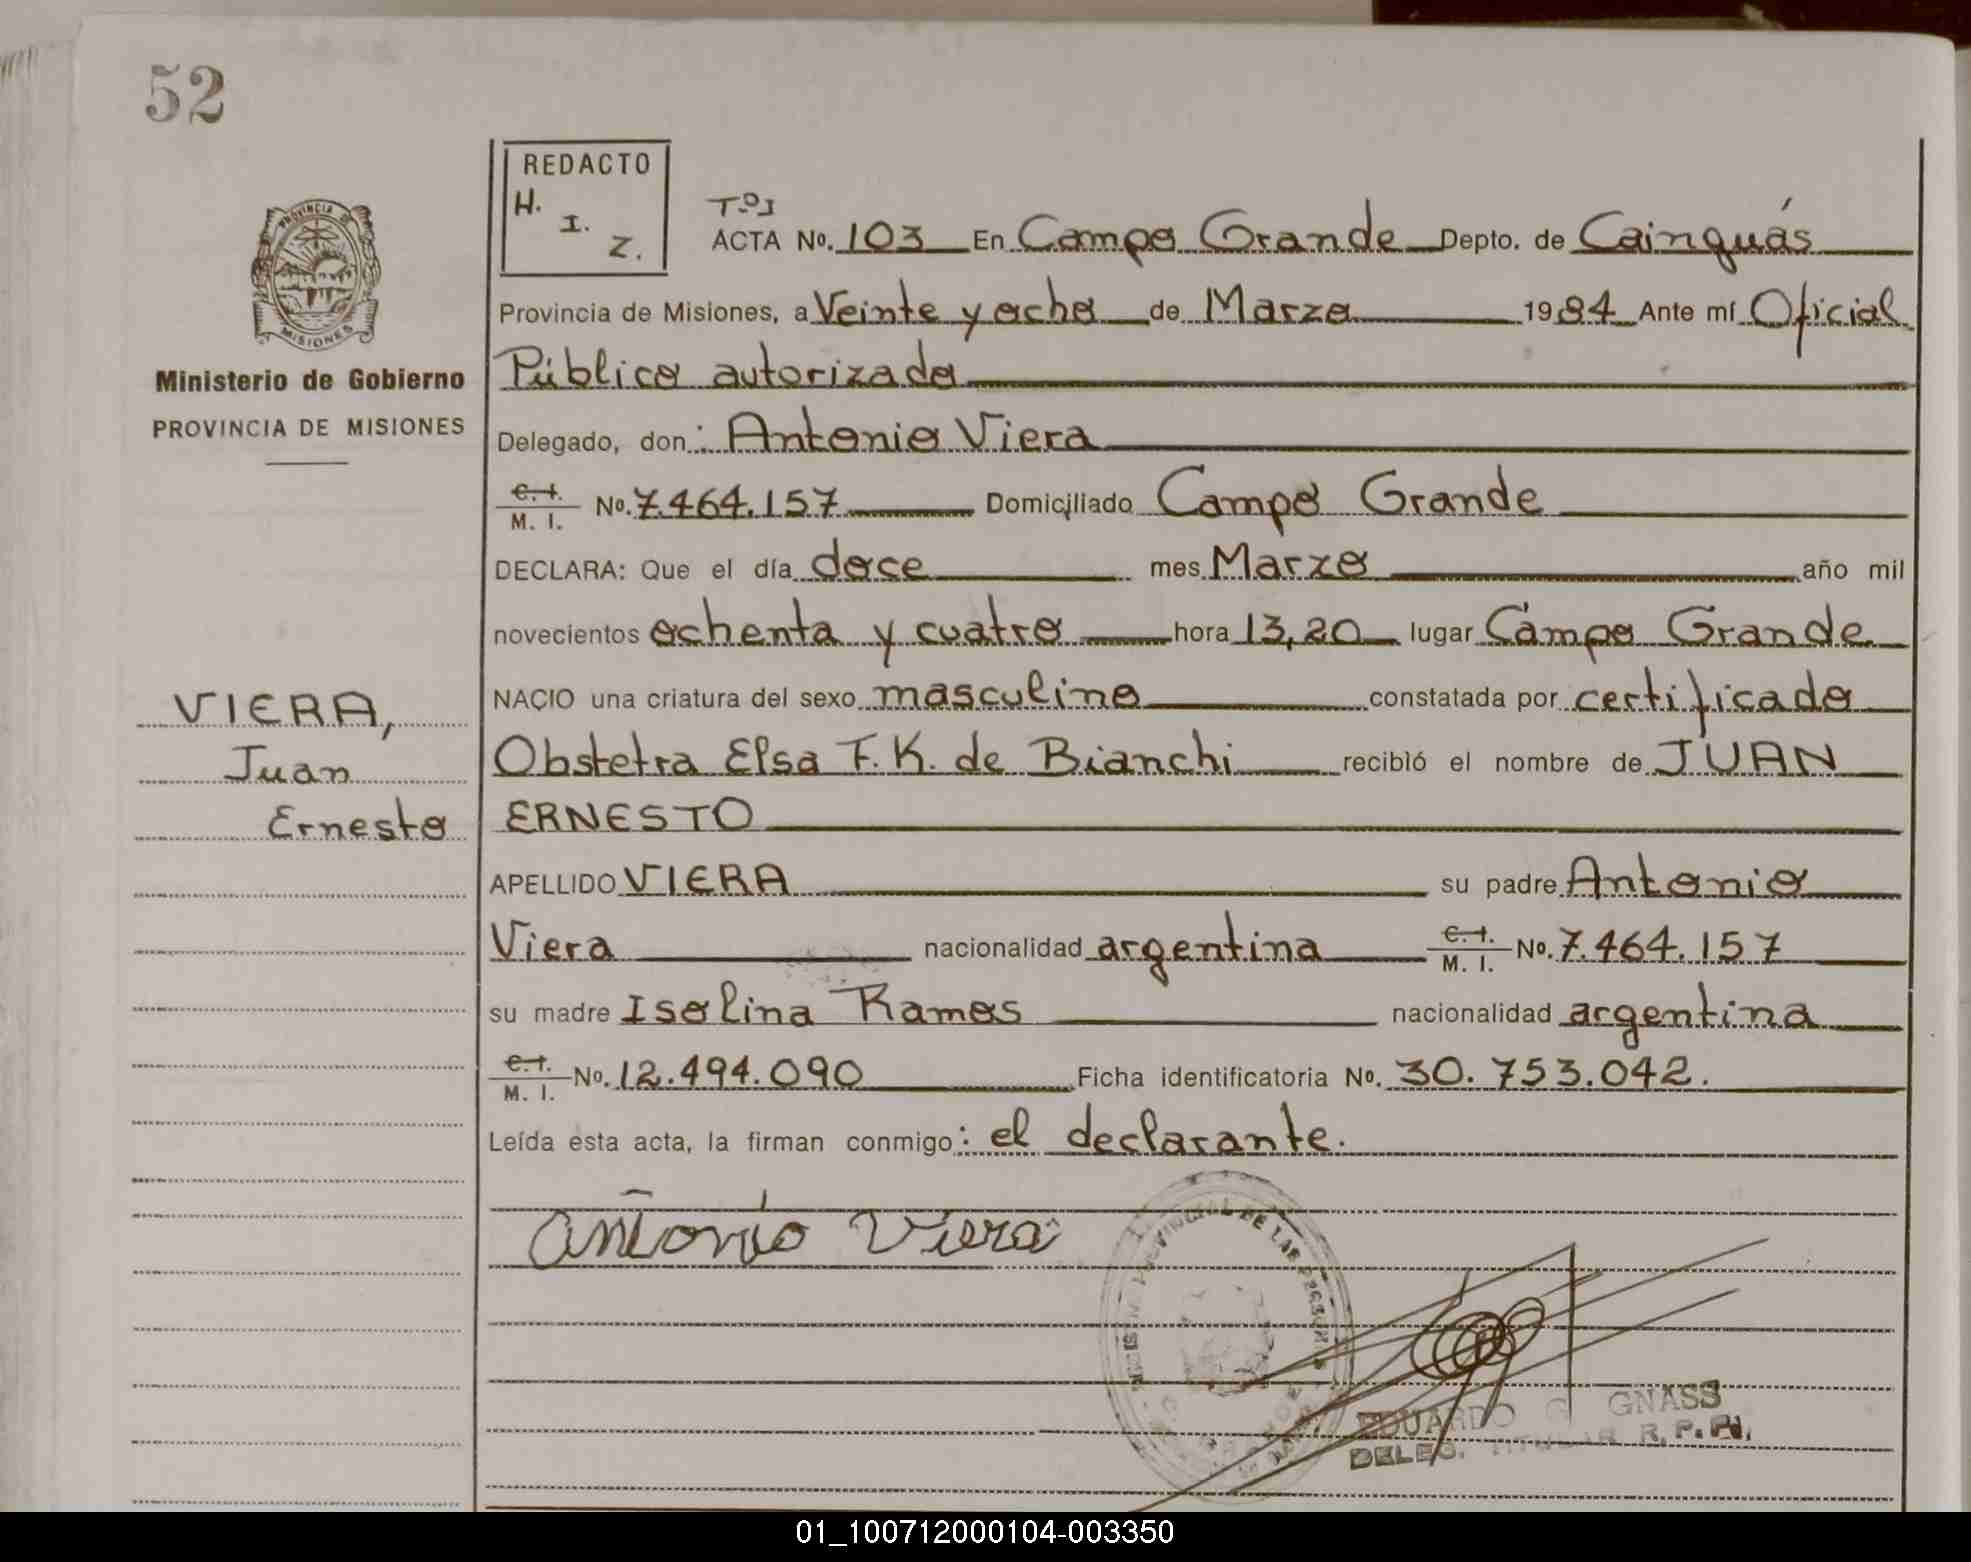 52
REDACTO
H.
I.
Z.
PROVINCIA DE
MISIONES
Ministerio de Gobierno
PROVINCIA DE MISIONES
Tº I
ACTA Nº. 103 En Campo Grande Depto. de Cainguás
Provincia de Misiones, a Veinte y ocho de Marzo 1984 Ante mí Oficial
Público autorizado
Delegado, don: Antonio Viera
C. I. M. I. Nº. 7.464.157 Domiciliado Campo Grande
DECLARA: Que el día doce mes Marzo año mil
novecientos ochenta y cuatro hora 13,20 lugar Campo Grande
NACIO una criatura del sexo masculino constatada por certificado
Obstetra Elsa F. K. de Bianchi recibió el nombre de JUAN
ERNESTO
VIERA,
Juan
Ernesto
APELLIDO VIERA su padre Antonio
Viera nacionalidad argentina C. I. M. I. Nº. 7.464.157
su madre Isolina Ramos nacionalidad argentina
C. I. M. I. Nº. 12.494.090 Ficha identificatoria Nº. 30.753.042.
Leída esta acta, la firman conmigo: el declarante.
Antonio Viera
PROVINCIAL DE LAS PERSONAS
EDUARDO G. GNASS
DELEG. TITULAR R.P.P.
01_100712000104-003350